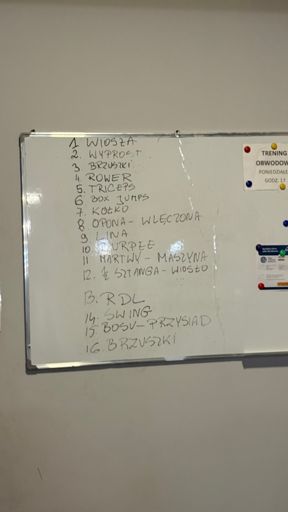 1. WIOSŁA
2. WYPROST
3. BRZUSZKI
4. ROWER
5. TRICEPS
6 BOX JUMPS
7. KÓŁKO
8 OPONA - WLECZONA
9 LINA
10 BURPEE
11 MARTWY - MASZYNA
12. SZTANGA - WIOSŁO
13. RDL
14. SWING
15 BOSU - PRZYSIAD
16. BRZUSZKI
TRENING
OBWODOW
PONIEDZIAŁE
GODZ. 17